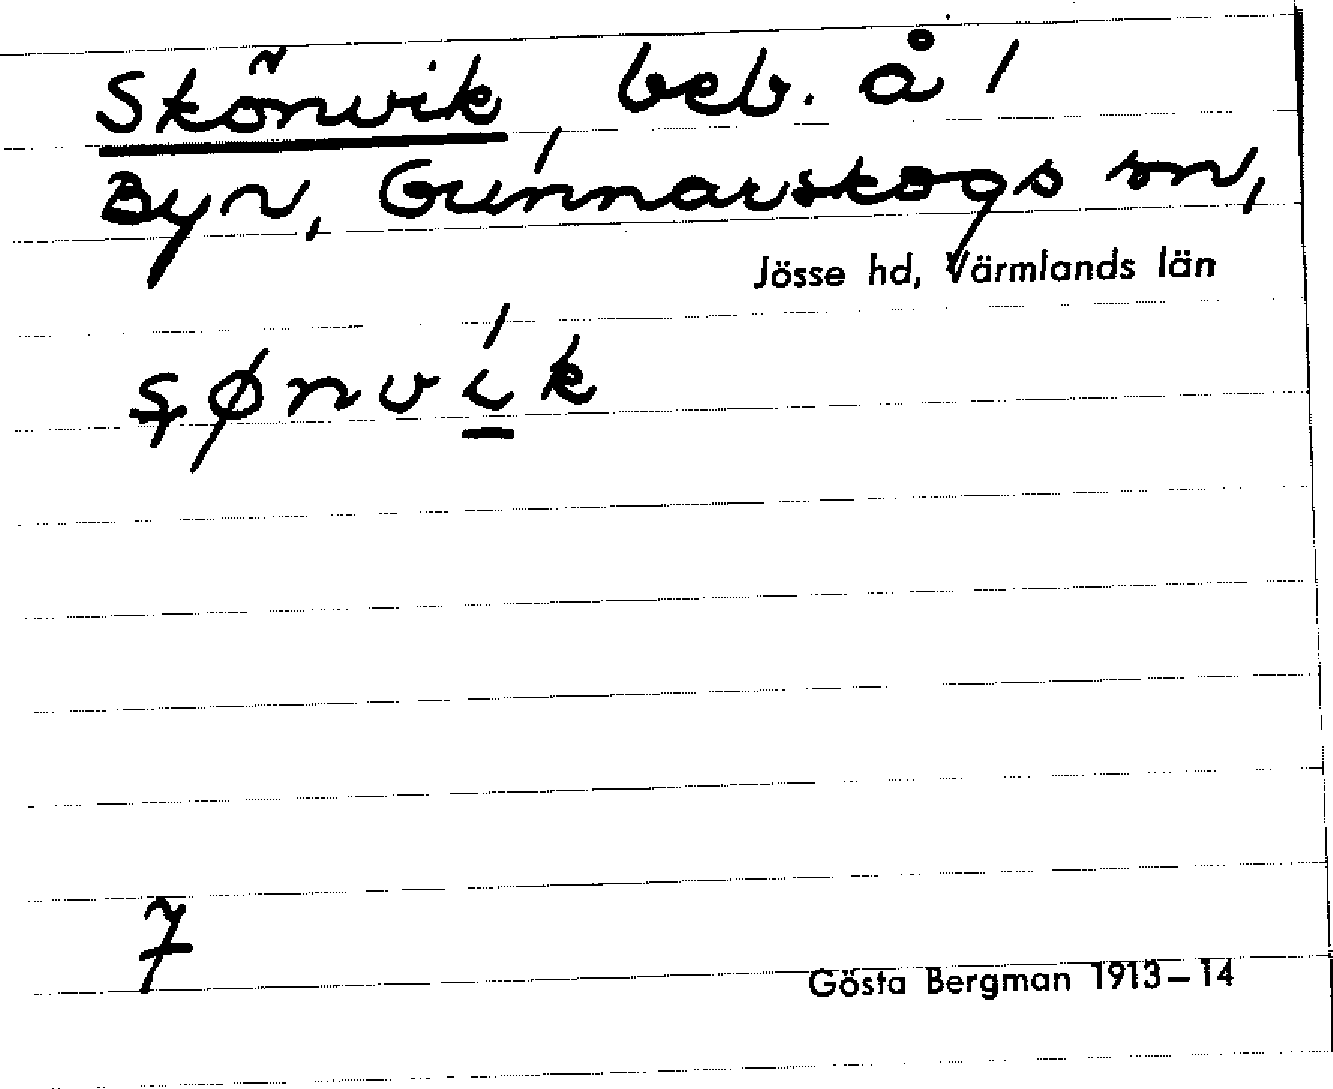 Skönvik, beb. å /
Byn, Gunnarskogs sn,
Jösse hd, Värmlands län
7
Gösta Bergman 1913–14